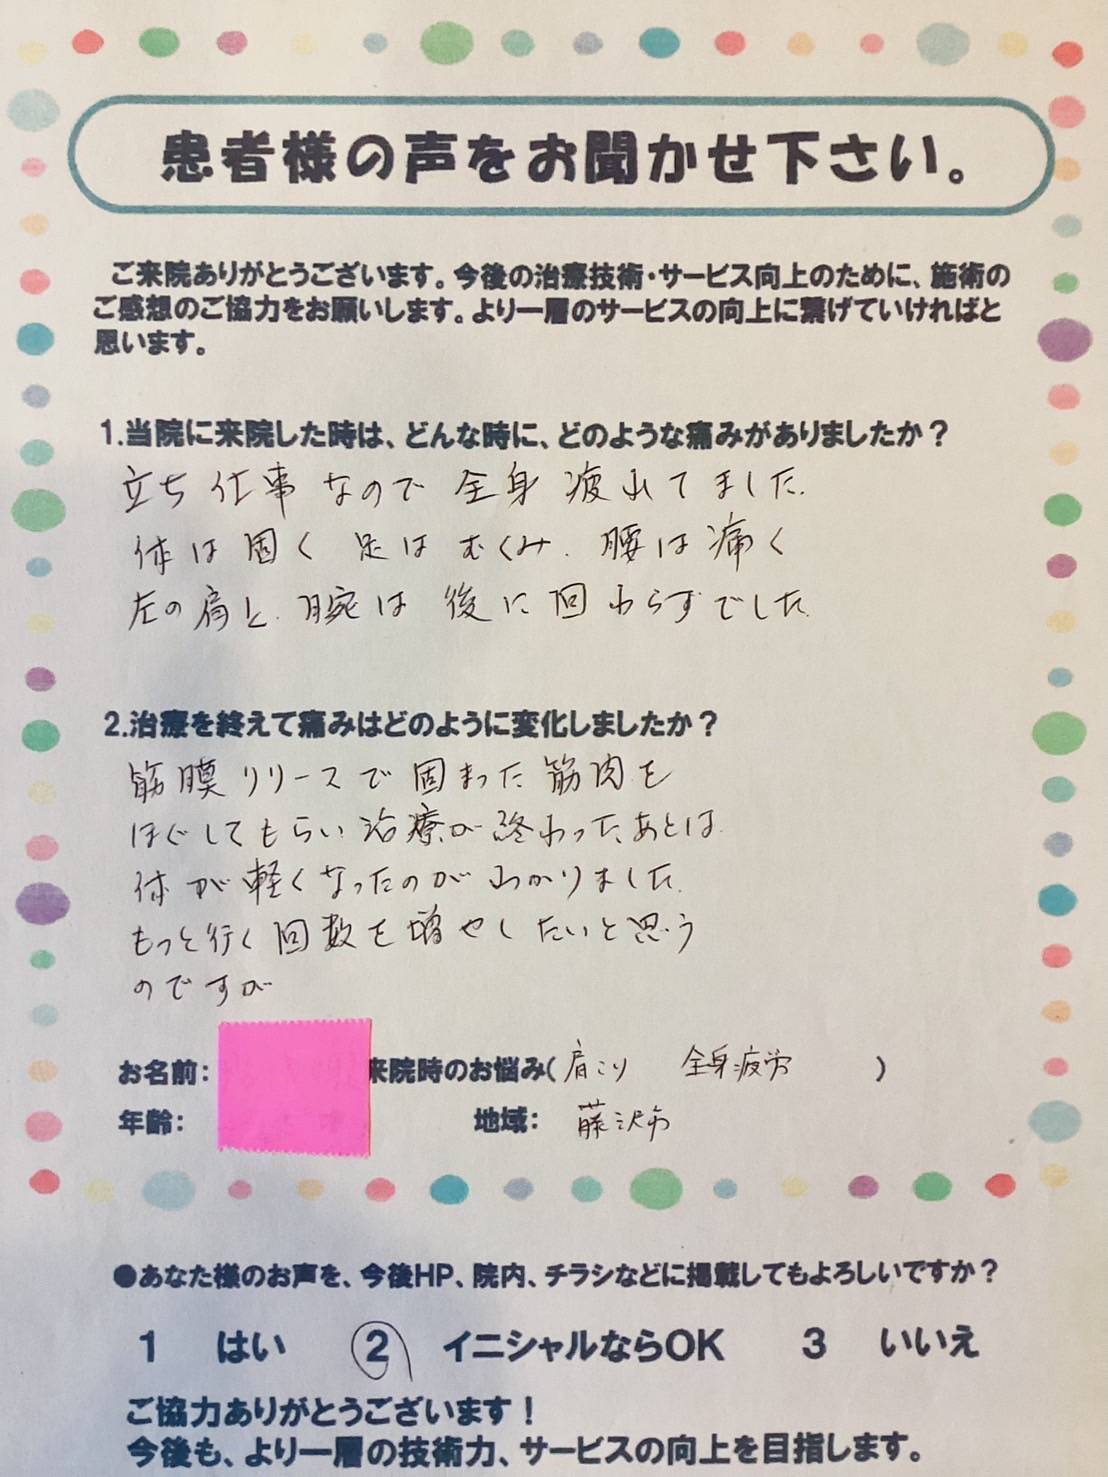 患者様の声をお聞かせ下さい。
ご来院ありがとうございます。今後の治療技術・サービス向上のために、施術の
ご感想のご協力をお願いします。より一層のサービスの向上に繋げていければと
思います。
1.当院に来院した時は、どんな時に、どのような痛みがありましたか？
立ち仕事なので全身疲れてました。
体は固く足はむくみ、腰は痛く
左の肩と、腕は後に回わらずでした。
2.治療を終えて痛みはどのように変化しましたか？
筋膜リリースで固まった筋肉を
ほぐしてもらい治療が終わったあとは、
体が軽くなったのがわかりました。
もっと行く回数を増やしたいと思う
のですが
お名前: 来院時のお悩み(肩こり 全身疲労 )
年齢: 地域: 藤沢市
●あなた様のお声を、今後HP、院内、チラシなどに掲載してもよろしいですか？
1 はい 2 イニシャルならOK 3 いいえ
ご協力ありがとうございます！
今後も、より一層の技術力、サービスの向上を目指します。